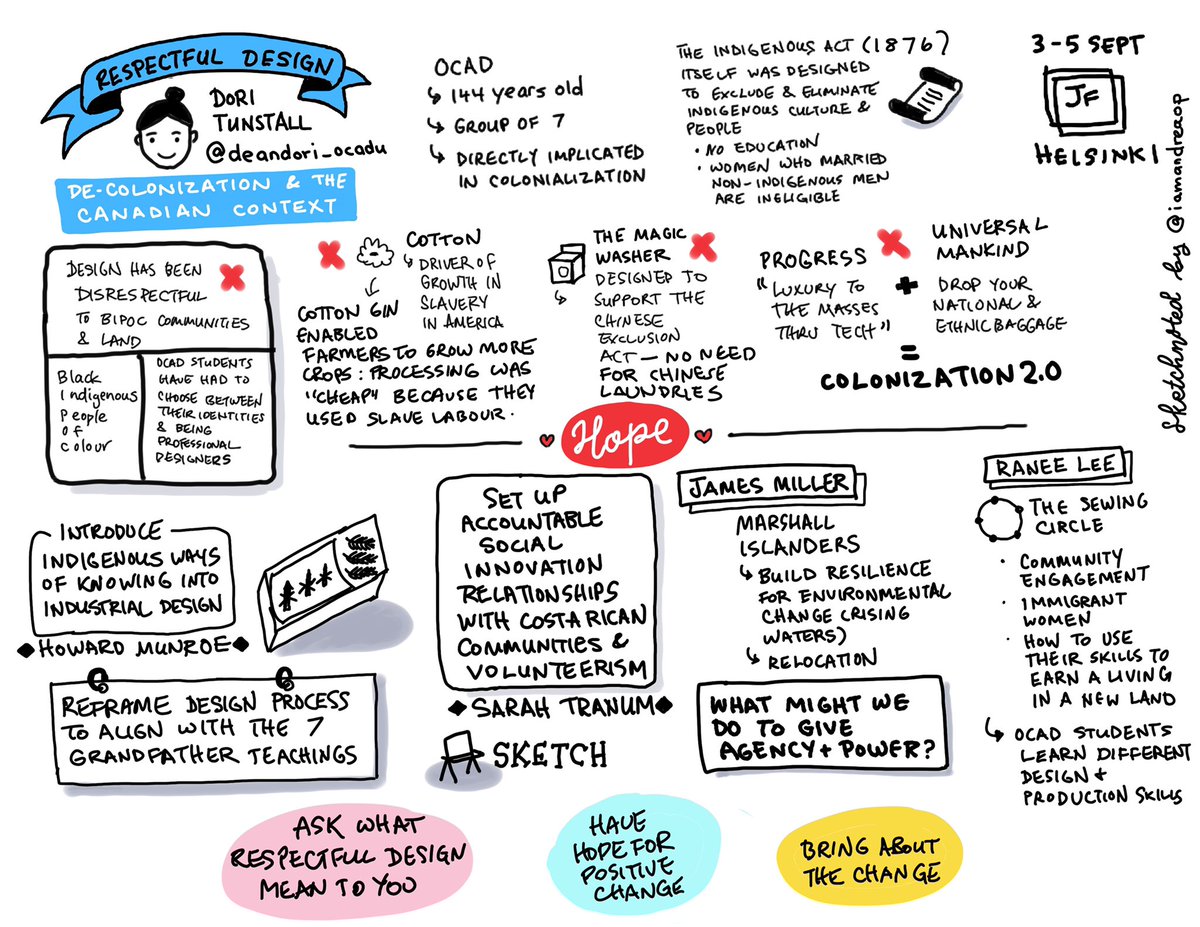 RESPECTFUL DESIGN
DORI
TUNSTALL
@deandori_ocadu
DE-COLONIZATION & THE
CANADIAN CONTEXT
OCAD
144 years old
GROUP OF 7
DIRECTLY IMPLICATED
IN COLONIALIZATION
THE INDIGENOUS ACT (1876)
ITSELF WAS DESIGNED
TO EXCLUDE & ELIMINATE
INDIGENOUS CULTURE &
PEOPLE
• NO EDUCATION
• WOMEN WHO MARRIED
NON-INDIGENOUS MEN
ARE INELIGIBLE
3-5 SEPT
JF
HELSINKI
Sketchnoted by @iamandrerop
DESIGN HAS BEEN
DISRESPECTFUL
TO BIPOC COMMUNITIES
& LAND
Black
Indigenous
People
Of
Colour
OCAD STUDENTS
HAVE HAD TO
CHOOSE BETWEEN
THEIR IDENTITIES
& BEING
PROFESSIONAL
DESIGNERS
COTTON
DRIVER OF
GROWTH IN
SLAVERY
IN AMERICA
COTTON GIN
ENABLED
FARMERS TO GROW MORE
CROPS: PROCESSING WAS
"CHEAP" BECAUSE THEY
USED SLAVE LABOUR.
THE MAGIC
WASHER
DESIGNED TO
SUPPORT THE
CHINESE
EXCLUSION
ACT — NO NEED
FOR CHINESE
LAUNDRIES
PROGRESS
"LUXURY TO
THE MASSES
THRU TECH"
+
UNIVERSAL
MANKIND
DROP YOUR
NATIONAL &
ETHNIC BAGGAGE
=
COLONIZATION 2.0
Hope
INTRODUCE
INDIGENOUS WAYS
OF KNOWING INTO
INDUSTRIAL DESIGN
HOWARD MUNROE
REFRAME DESIGN PROCESS
TO ALIGN WITH THE 7
GRANDFATHER TEACHINGS
SET UP
ACCOUNTABLE
SOCIAL
INNOVATION
RELATIONSHIPS
WITH COSTARICAN
COMMUNITIES &
VOLUNTEERISM
SARAH TRANUM
SKETCH
JAMES MILLER
MARSHALL
ISLANDERS
BUILD RESILIENCE
FOR ENVIRONMENTAL
CHANGE (RISING
WATERS)
RELOCATION
WHAT MIGHT WE
DO TO GIVE
AGENCY + POWER?
RANEE LEE
THE SEWING
CIRCLE
• COMMUNITY
ENGAGEMENT
• IMMIGRANT
WOMEN
• HOW TO USE
THEIR SKILLS TO
EARN A LIVING
IN A NEW LAND
OCAD STUDENTS
LEARN DIFFERENT
DESIGN +
PRODUCTION SKILLS
ASK WHAT
RESPECTFUL DESIGN
MEAN TO YOU
HAVE
HOPE FOR
POSITIVE
CHANGE
BRING ABOUT
THE CHANGE